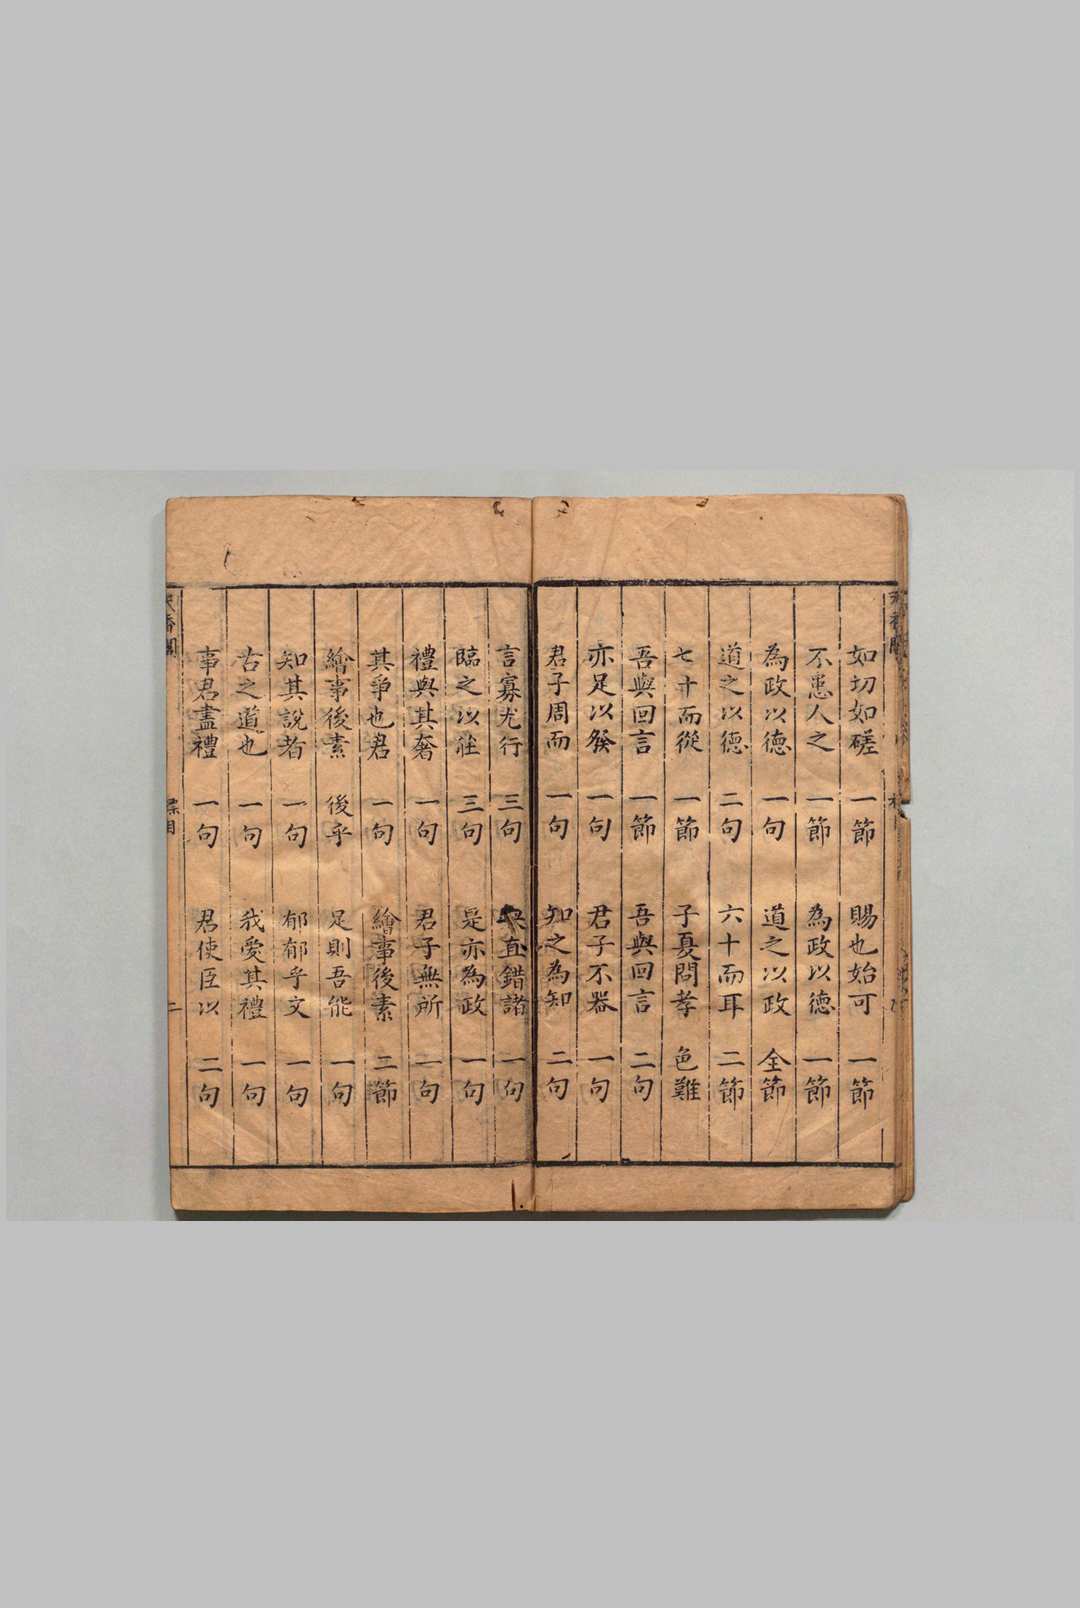 如切如磋 一節 賜也始可 一節
不患人之 一節 為政以德 一節
為政以德 一句 道之以政 全節
道之以德 二句 六十而耳 二節
七十而從 一節 子夏問孝 色難
吾與回言 一節 吾與回言 二句
亦足以發 一句 君子不器 一句
君子周而 一句 知之為知 二句
言寡尤行 三句 直錯諸 一句
臨之以莊 三句 是亦為政 一句
禮與其奢 一句 君子無所 一句
其爭也君 一句 繪事後素 二節
繪事後素 後乎 足則吾能 一句
知其說者 一句 郁郁乎文 一句
古之道也 一句 我愛其禮 一句
事君盡禮 一句 君使臣以 二句
天香閣 二